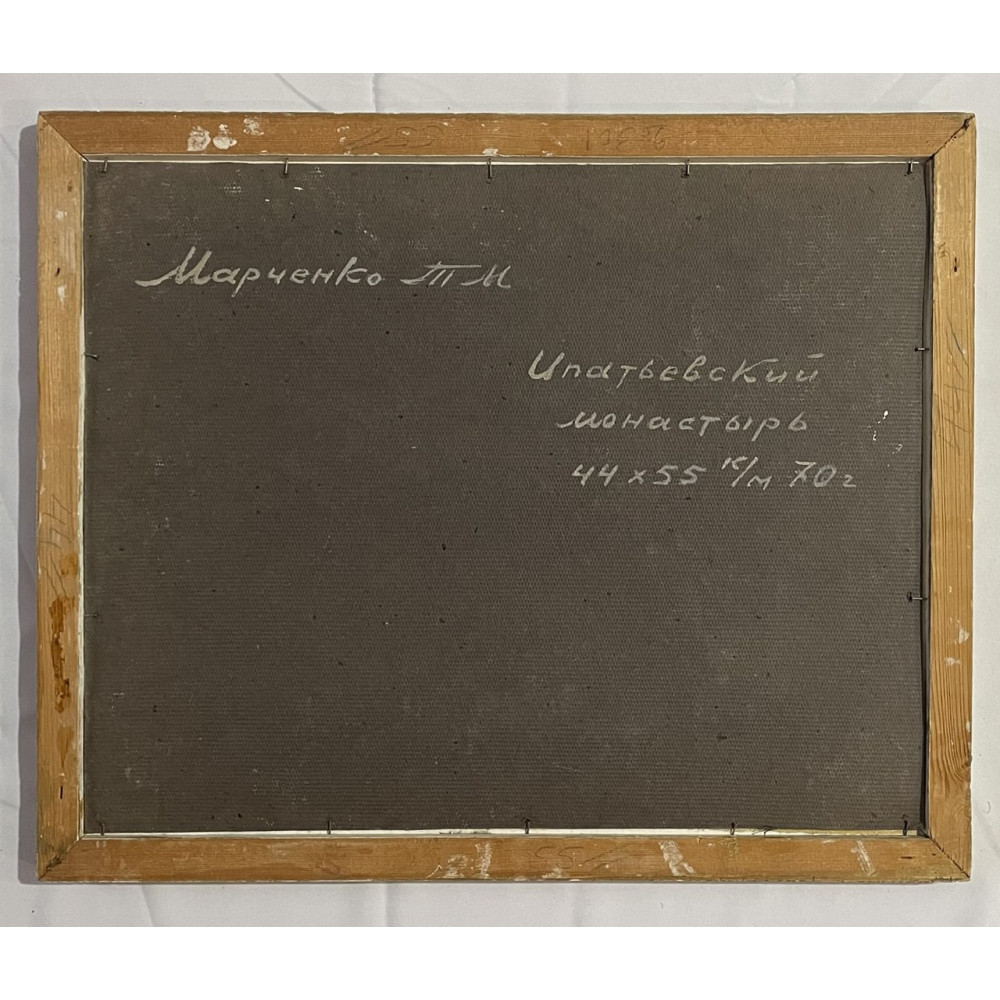 Марченко ТМ
Ипатьевский
монастырь
44х55 к/м 70г